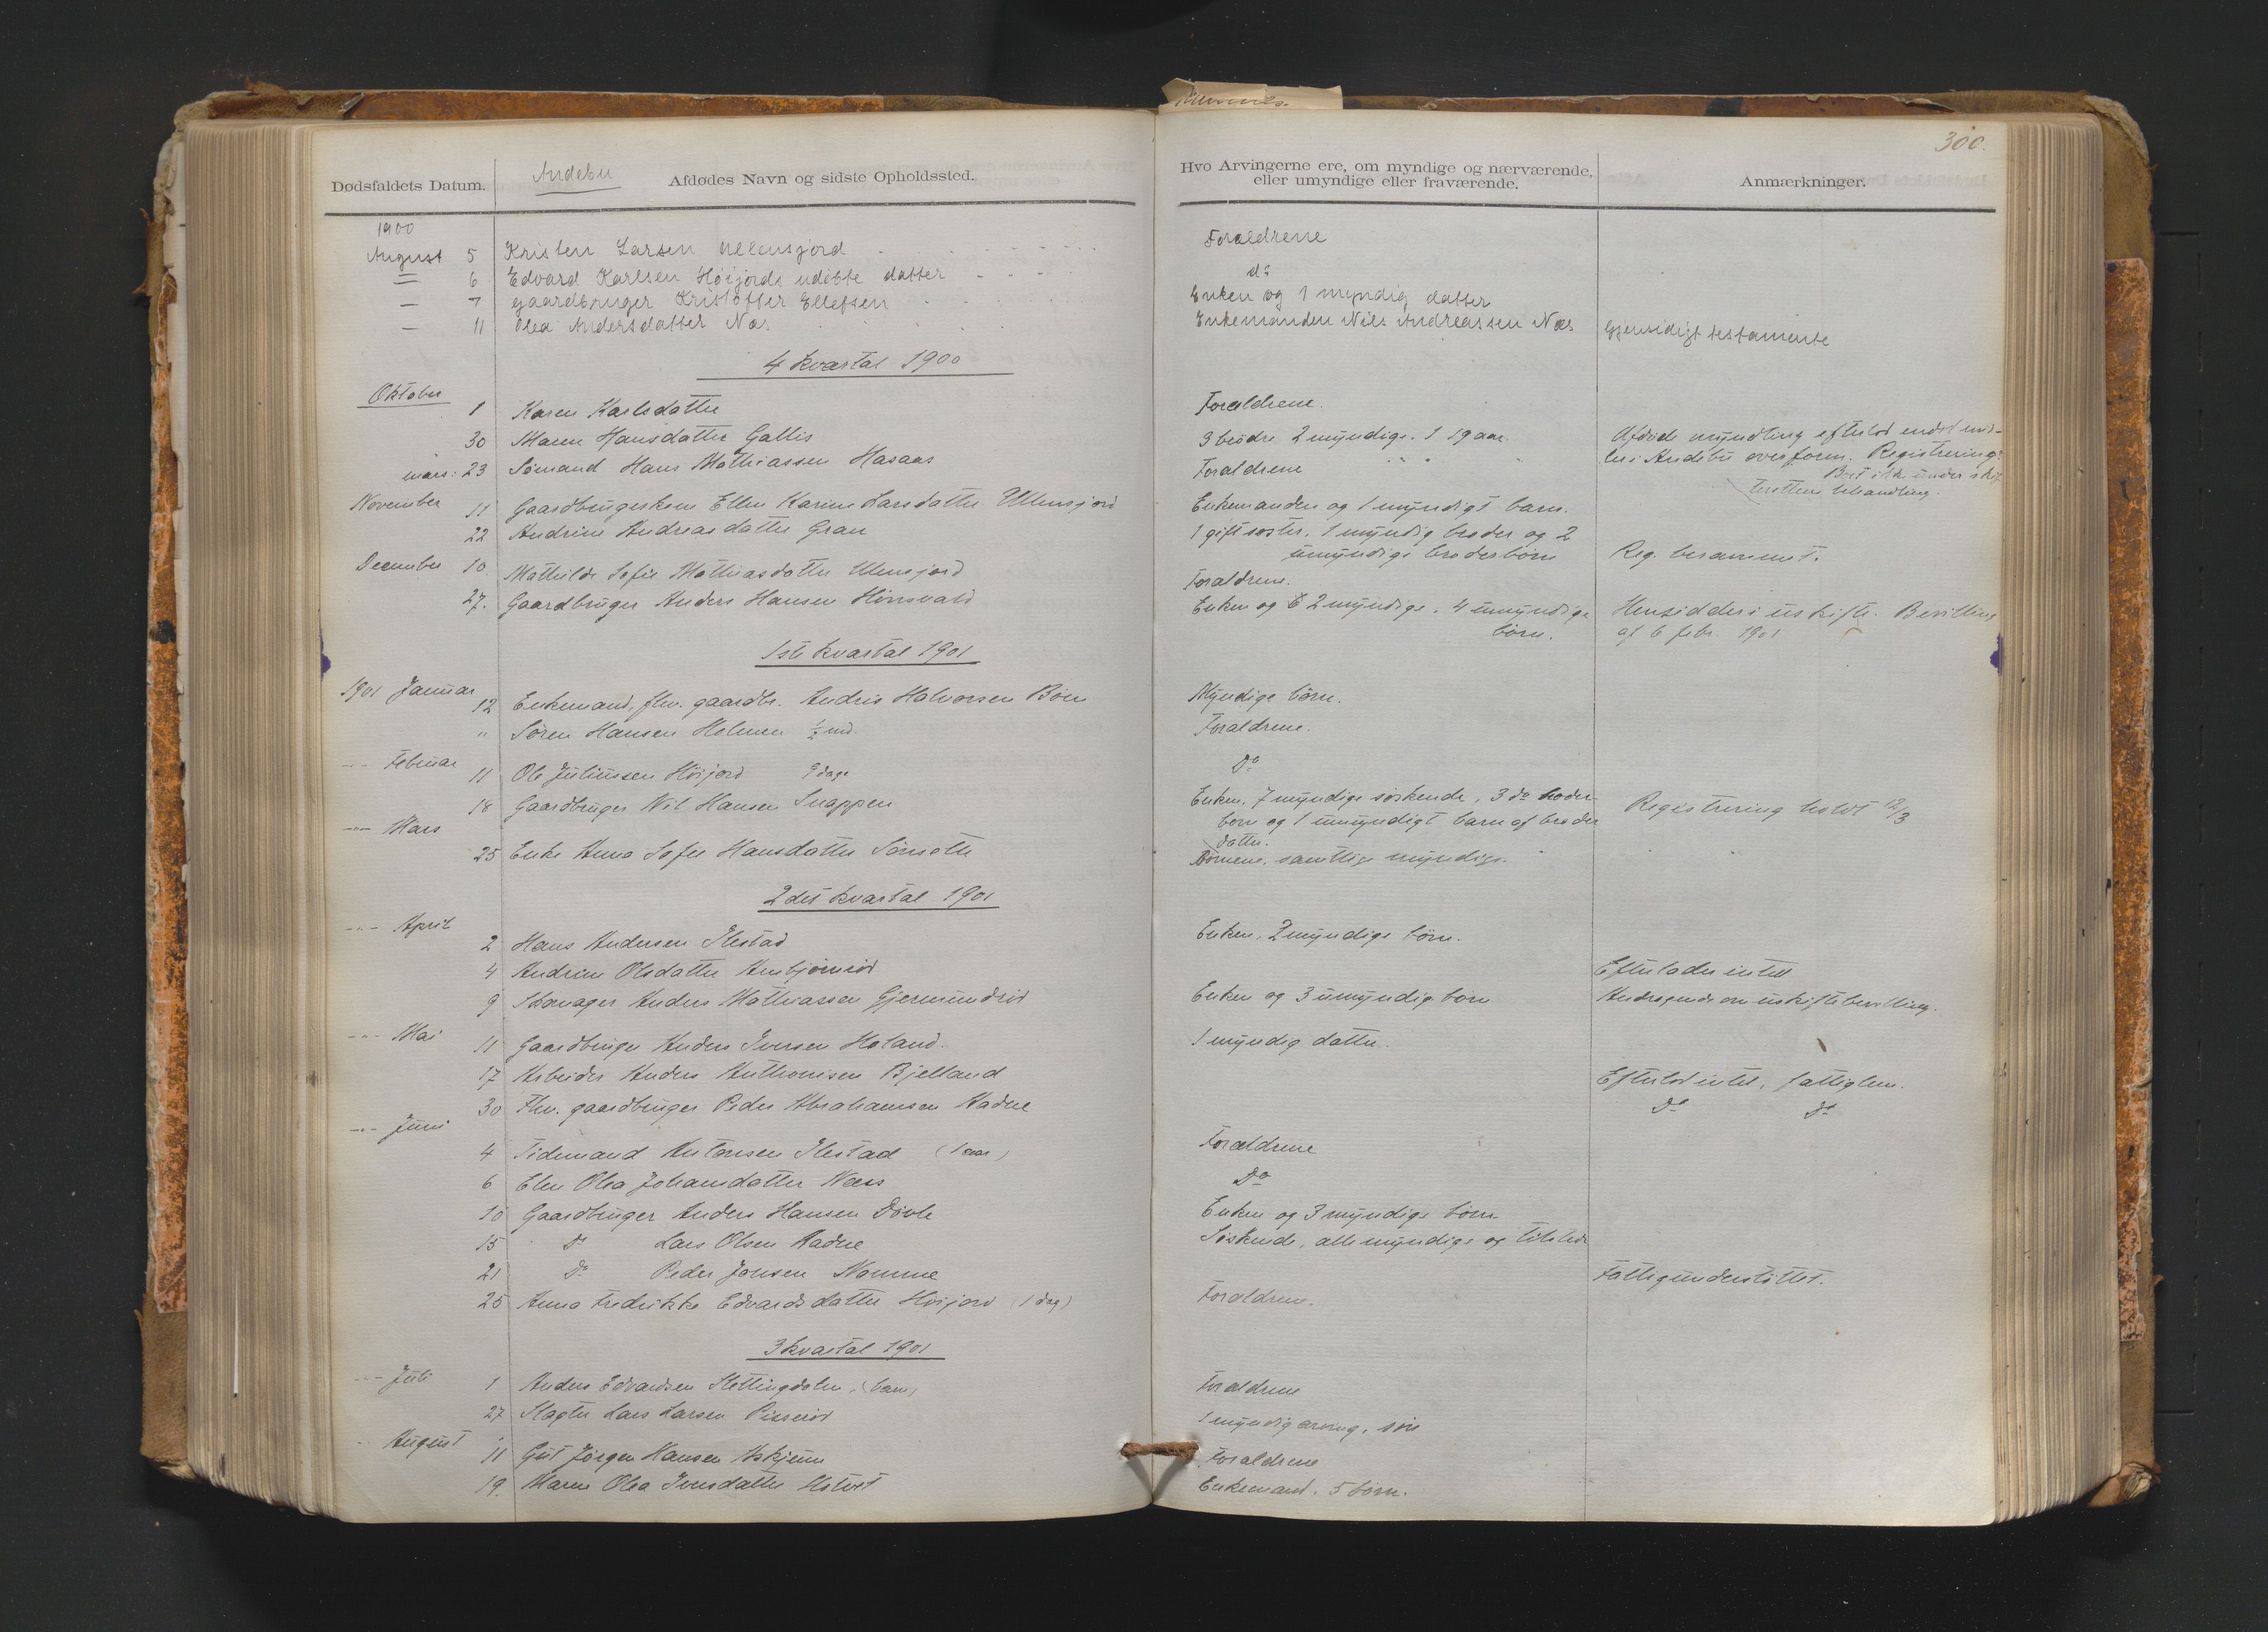 300.
Dødsfaldets Datum.
Andebu
Afdødes Navn og sidste Opholdssted.
Hvo Arvingerne ere, om myndige og nærværende,
eller umyndige eller fraværende.
Anmærkninger.
1900
August 5 Kristen Larsen Ullensjord Forældrene
— 6 Edvard Karlsen Høijords udøbte datter do
— 7 gaardbruger Kristoffer Ellefsen Enken og 1 myndig datter
— 11 Olea Andersdatter Næs Enkemanden Nils Andreassen Næs Gjensidigt testamente
4 kvartal 1900
Oktober
1 Karen Karlsdatter Forældrene.
30 Maren Hansdatter Gallis 3 brødre 2 myndige. 1 19 aar. Afdøde myndling efterlod endel mid-
mars: 23 Sømand Hans Mathiassen Hasaas Forældrene ler i Andebu overform. Registrering.
Boet ikke under skif
terettens behandling.
November 11 Gaardbrugerkone Ellen Karine Larsdatter Ullensjord Enkemanden og 1 myndigt barn.
22 Andrine Andreasdatter Gran 1 gift søster, 1 myndig broder og 2
umyndige broderbørn Reg. berammet.
December 10 Mathilde Sofie Mathiasdatter Ulensjord Forældrene.
27. Gaardbruger Anders Hansen Enken og 2 myndige, 4 umyndige Hensidder i uskifte. Bevilling
børn. af 6 febr. 1901
1ste kvartal 1901
1901 Januar 12 Enkemand, fhv. gaardbr. Andris Halvorsen Bøen Myndige børn.
" Søren Hansen Holmen ½ md. Forældrene.
-"- Februar 11 Ole Juliussen Høijord 9 dage Do
18 Gaardbruger Nil Hansen Snappen Enken. 7 myndige søskende, 3 do broder- Registrering holdt 12/3
børn og 1 umyndigt barn af broder
datter.
-"- Mars
25 Enke Anna Sofie Hansdatter Børnene, samtlige myndige.
2det kvartal 1901
-"- April
2 Hans Andersen Ilestad Enken, 2 myndige børn.
4 Andrine Olsdatter Arnbjørnrød Efterlader intet
9 Skomager Anders Mathiassen Gjermundrød Enken og 3 umyndige børn Andragende om uskiftebevilling.
-"- Mai 11 Gaardbruger Anders Iversen Holand. 1 myndig datter.
17 Arbeider Anders Anthonisen Bjelland Efterlod intet, fattiglem.
30 Fhv. gaardbruger Peder Abrahamsen Aadne Do Do
-"- Juni
4 Tidemand Antonsen Ilestad (1 aar) Forældrene
6 Elen Olea Johansdatter Næss Do
10 Gaardbruger Anders Hansen Døvle Enken og 3 myndige børn.
15 Do Lars Olsen Aadne Søskende, alle myndige og tilstede
21 Do Peder Jonsen Nomme Fattigunderstøttet.
25 Anna Fredrikke Edvardsdatter Høijord (1 dag) Forældrene.
3 kvartal 1901
-"- Juli 1 Anders Edvardsen Slettingdalen, (barn) Forældrene
27 Slagter Lars Larsen 1 myndig arving, søn
August 11 Gut Jørgen Hansen Askjem Forældrene
19. Maren Olea Iversdatter Enkemand. 5 børn.